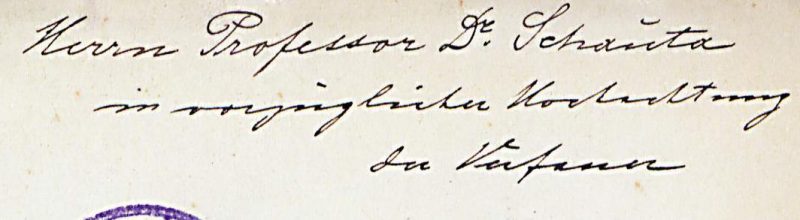 Herrn Professor Dr. Schauta
in vorzüglicher Hochachtung
der Verfasser